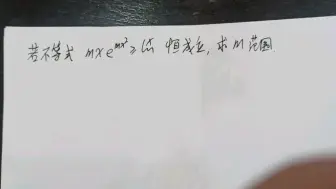 若不等式 mxe^{mx²} ≥ lnx 恒成立, 求m范围